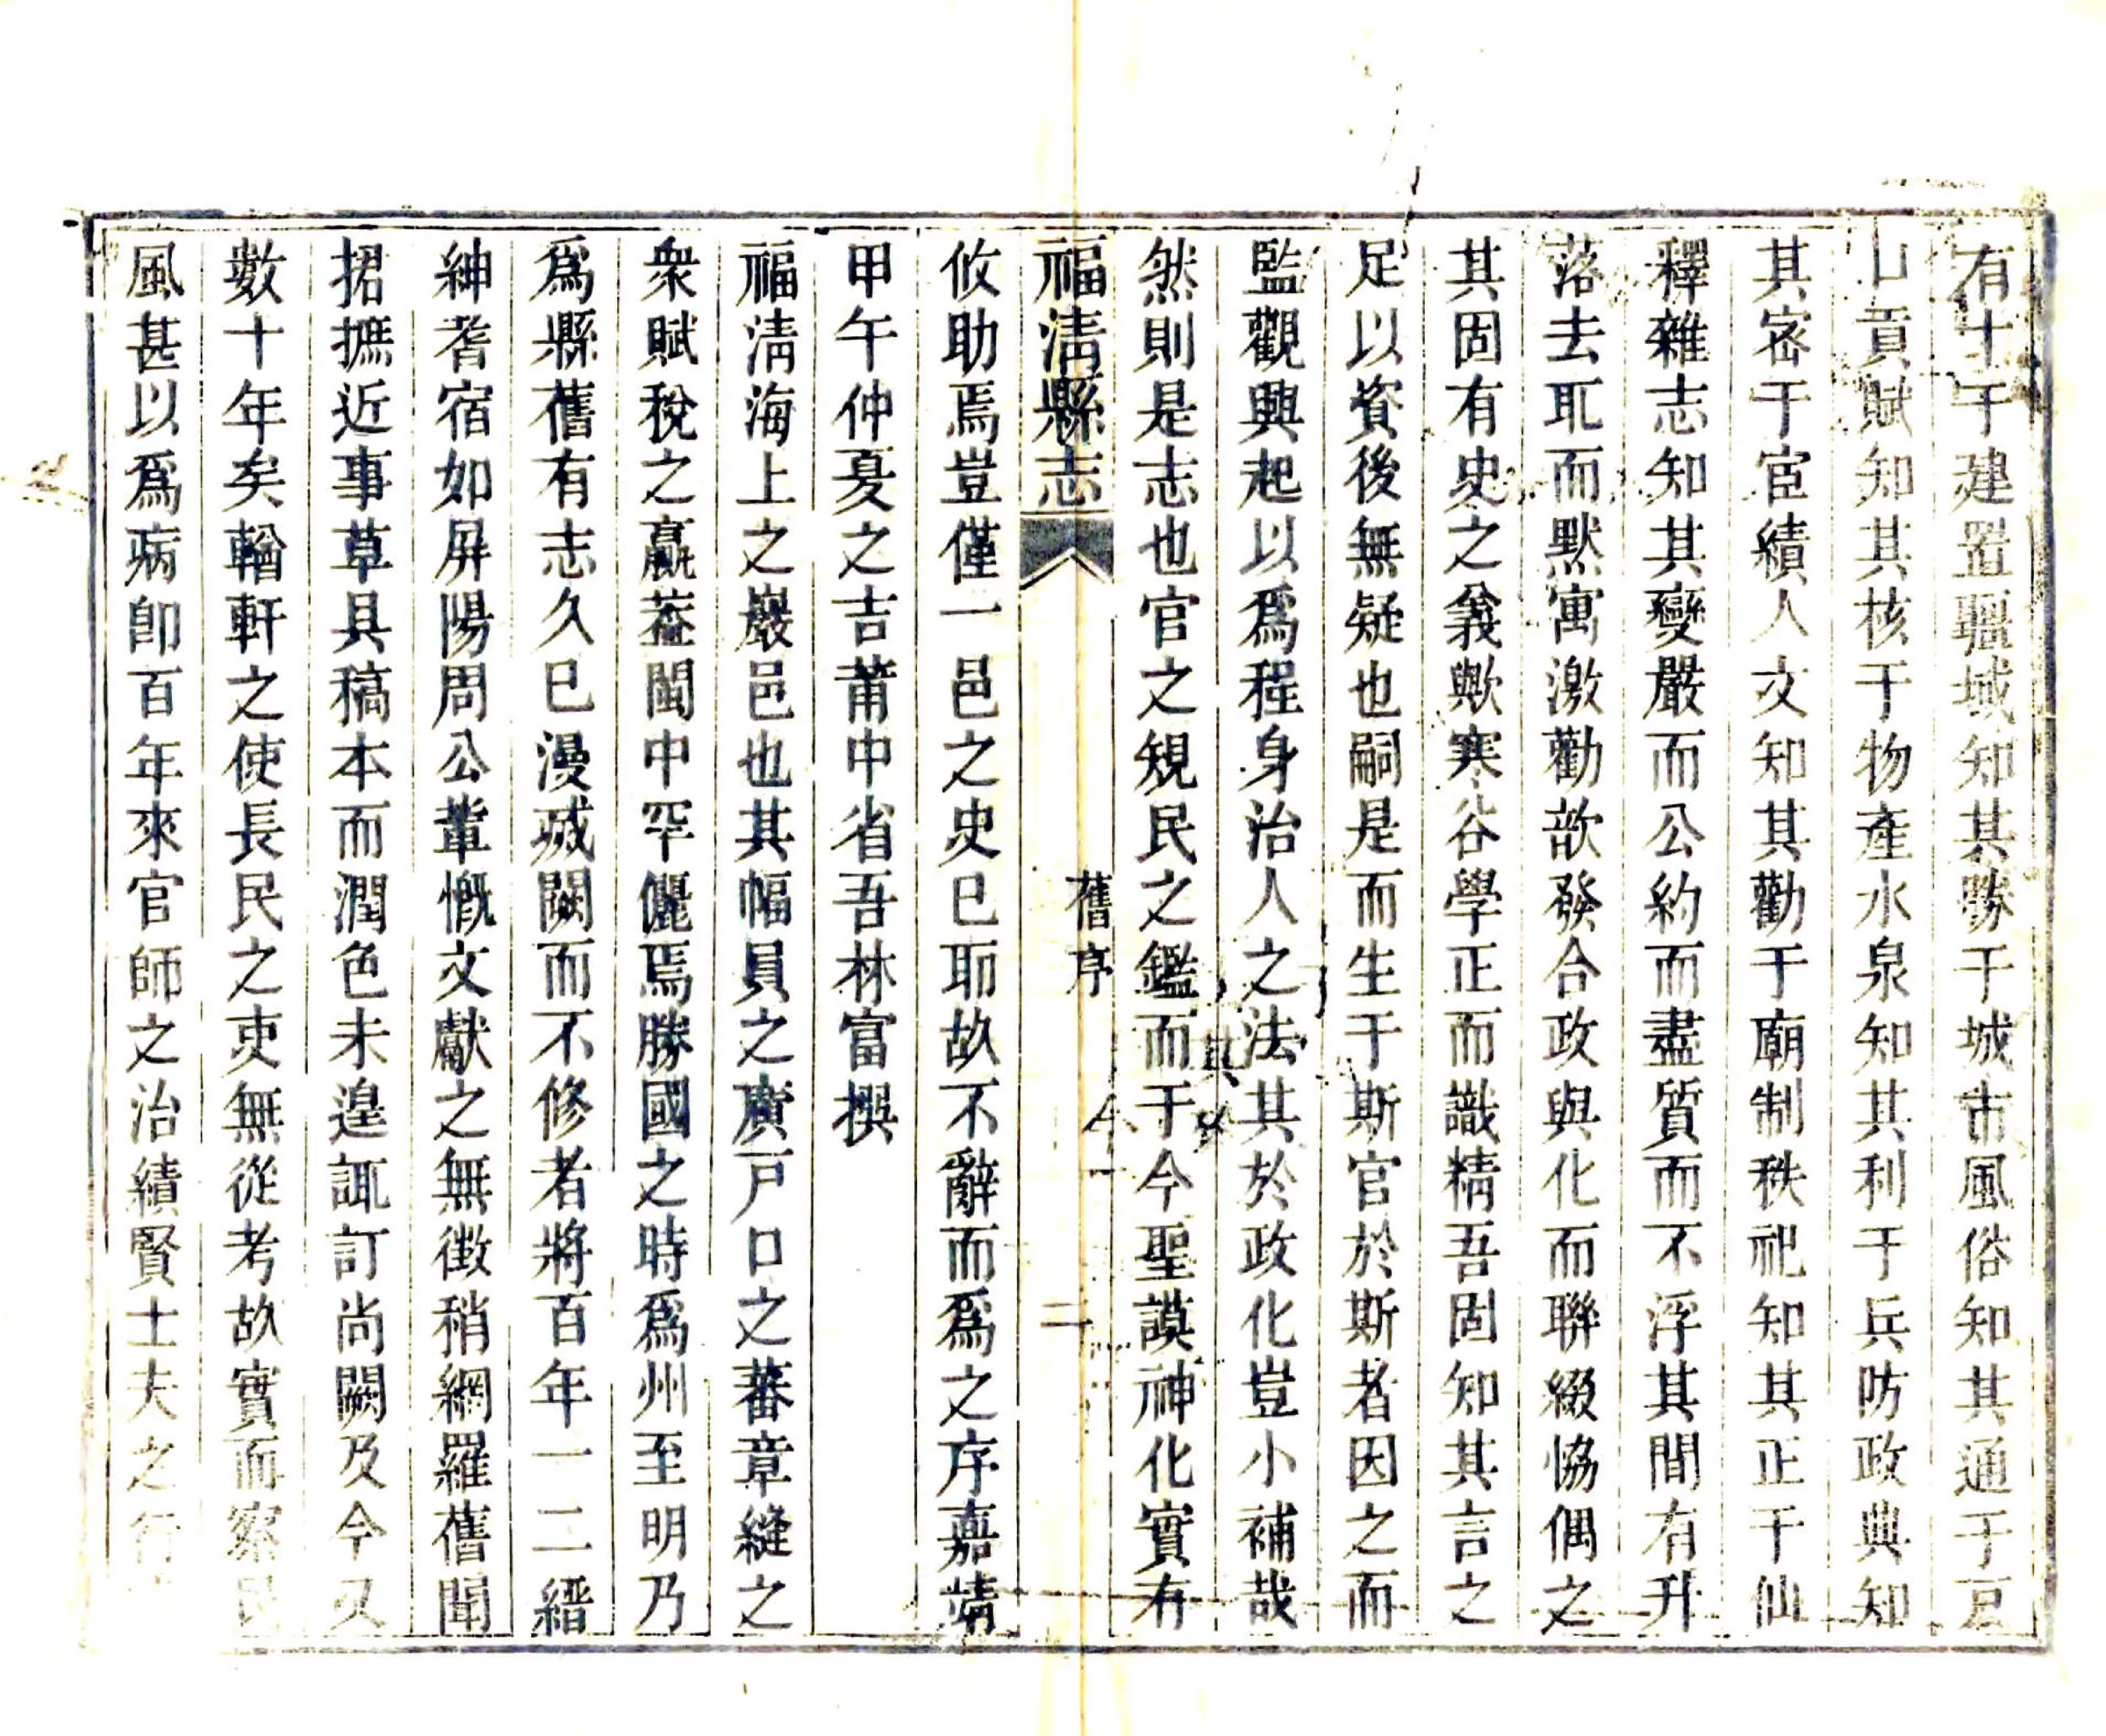 有土于建置疆域知其勝于城市風俗知其通于
貢賦知其核于物產水泉知其利于兵防政典知
其密于宦績人文知其勸于廟制秩祀知其正于仙
釋雜志知其變嚴而公約而盡質而不浮其間有升
落去耴而默寓激勸歆發合政與化而聯綴恊偶之
其固有史之義歟寒谷學正而識精吾固知其言之
足以資後無疑也嗣是而生于斯官於斯者因之而
監觀興起以爲程身治人之法其於政化豈小補哉
然則是志也官之規民之鑑而于今聖謨神化實有
福淸縣志
舊序
二
攸助焉豈僅一邑之史已耶故不辭而爲之序嘉靖
甲午仲夏之吉莆中省吾林富撰
福淸海上之巖邑也其幅員之廣戸口之蕃章縫之
衆賦稅之贏葢閩中罕儷焉勝國之時爲州至明乃
爲縣舊有志久已漫滅闕而不修者將百年一二縉
紳耆宿如屏陽周公輩慨文獻之無徴稍網羅舊聞
捃摭近事草具稿本而潤色未遑諏訂尚闕及今又
數十年矣輶軒之使長民之吏無從考故實而察民
風甚以爲病卽百年來官師之治績賢士夫之行